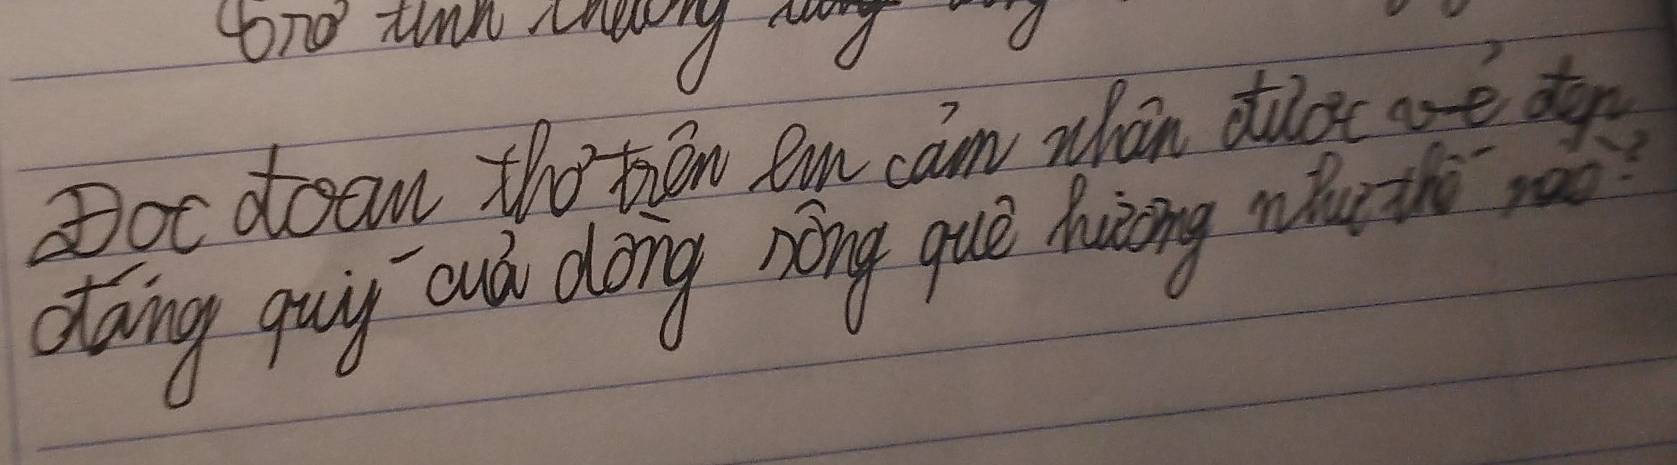 Trở tình thương
Đọc đoạn thơ trên em cảm nhận được vẻ đẹp
đáng quý của dòng sông quê hương như thế nào?